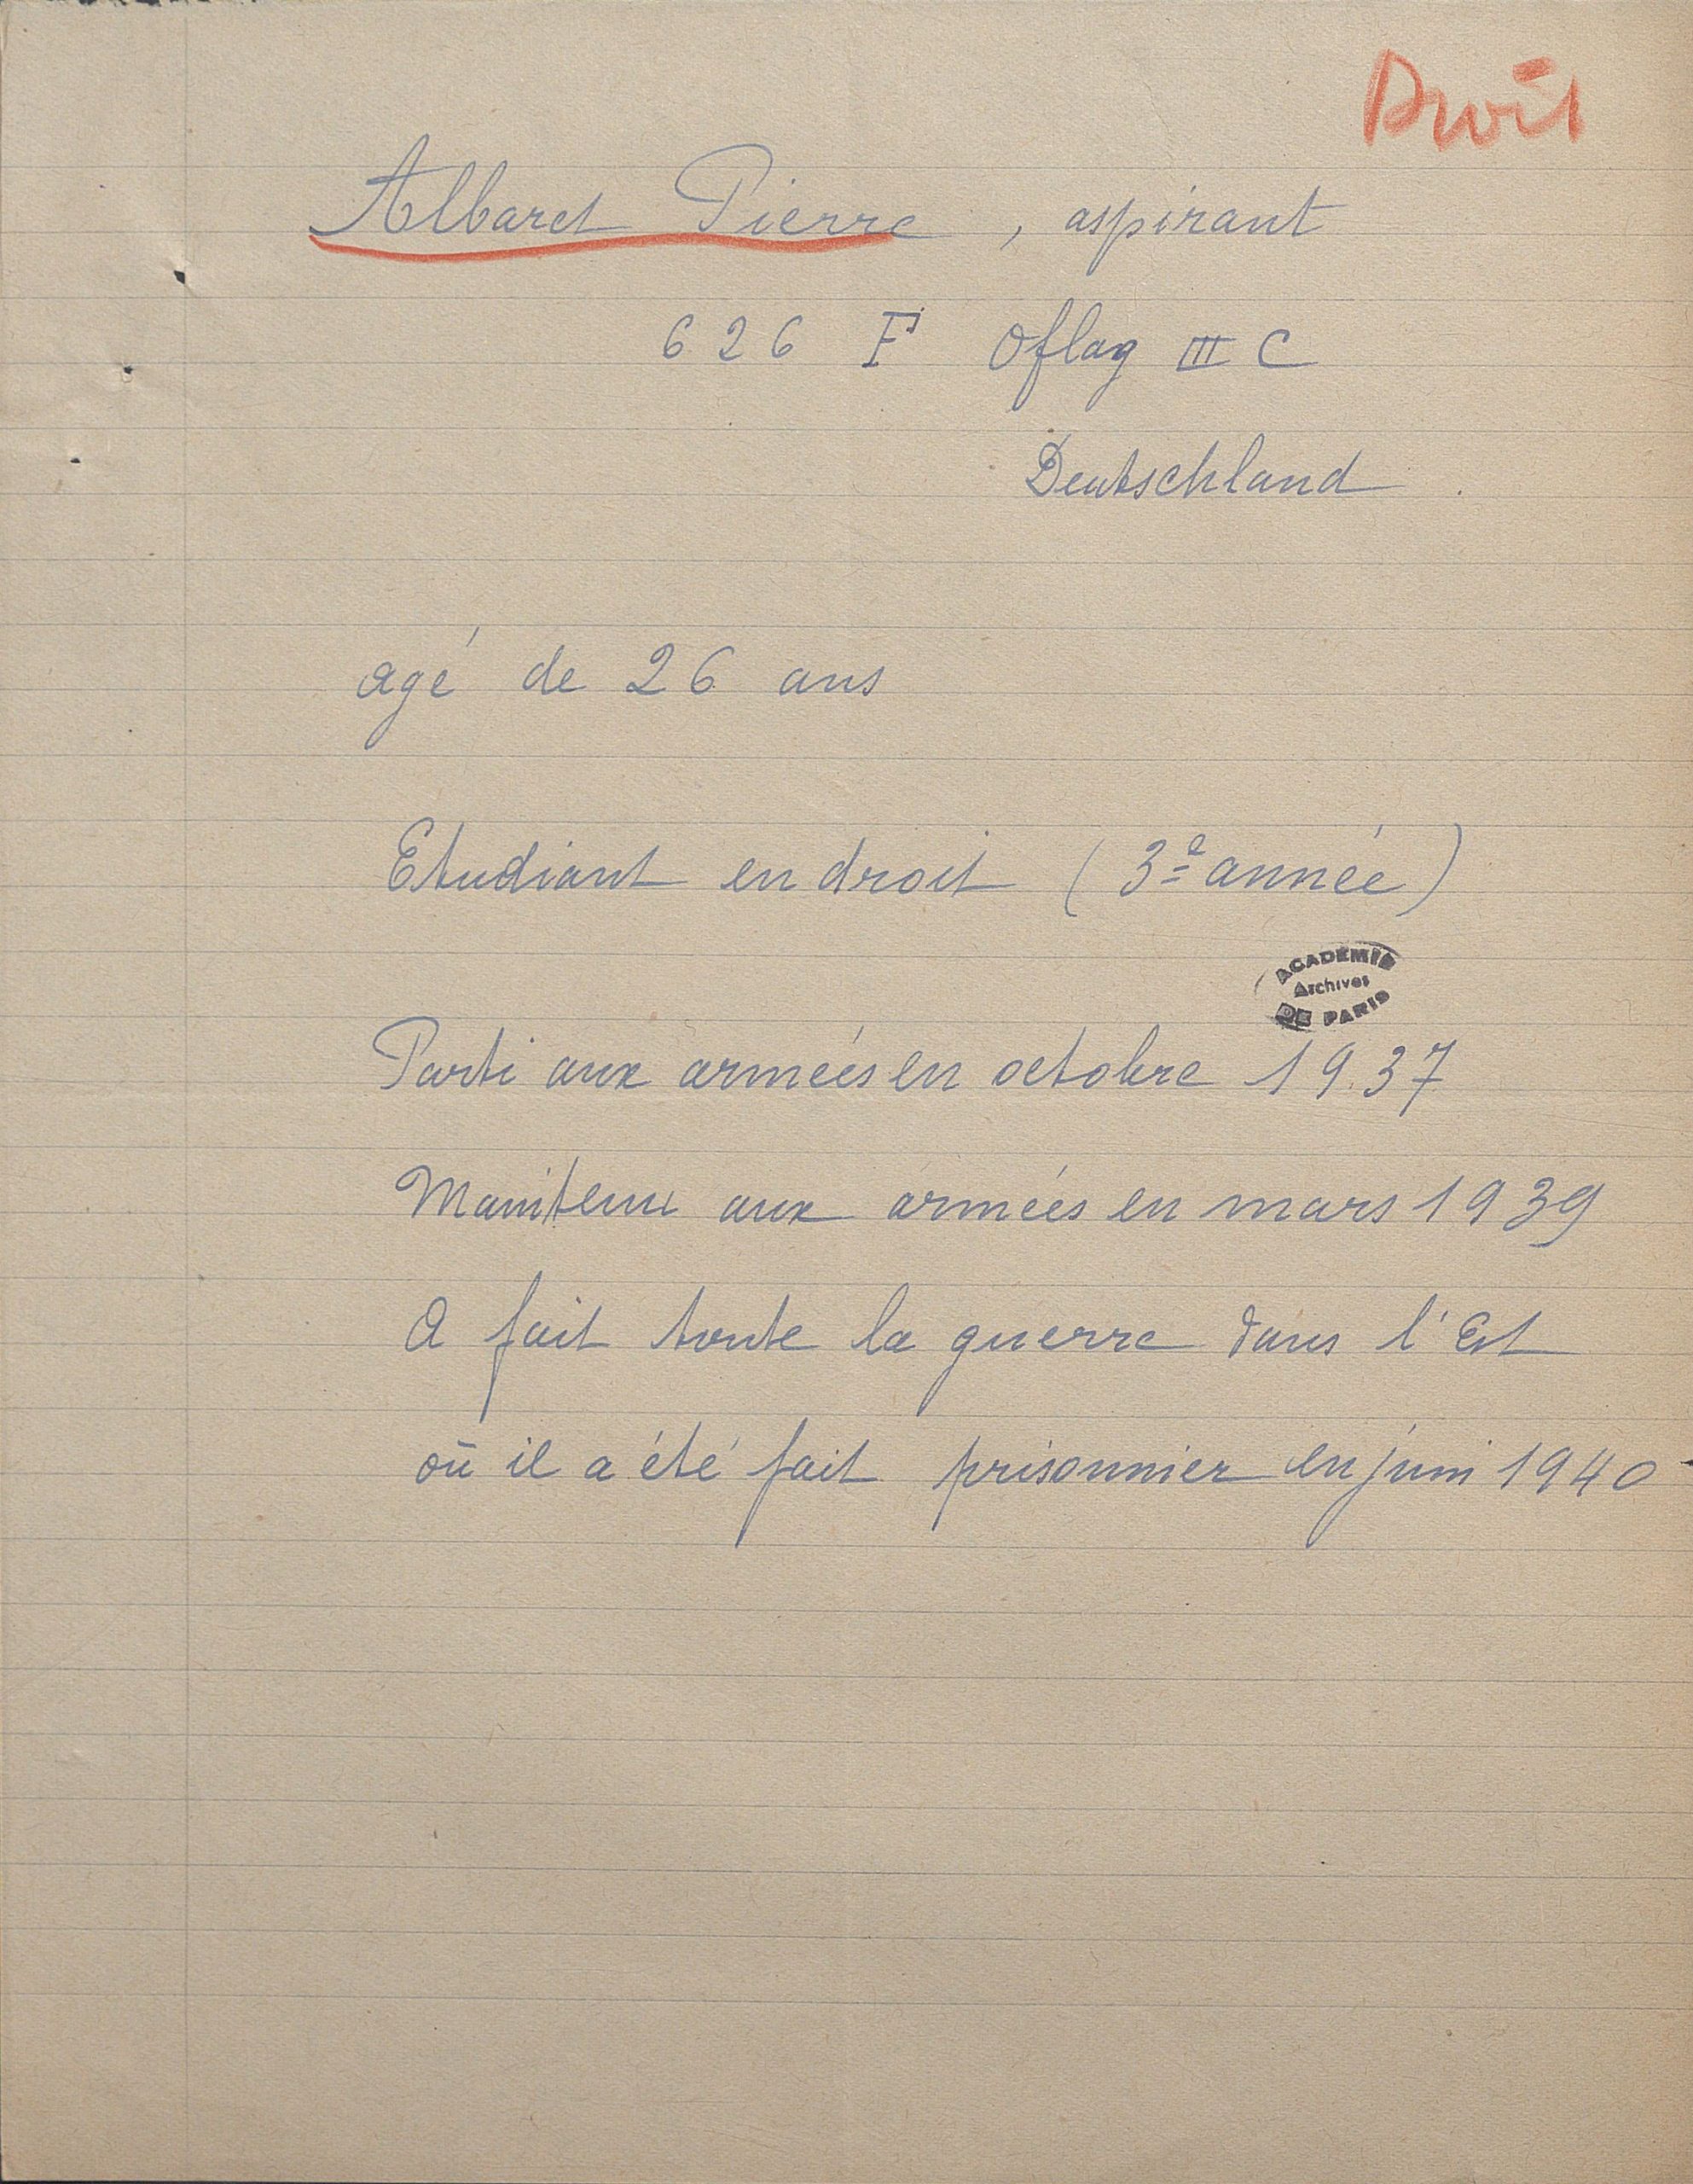 Droit
Albaret Pierre, aspirant
626 F Oflag III C
Deutschland
agé de 26 ans
Etudiant en droit (3e année)
ACADÉMIE
Archives
DE PARIS
Parti aux armées en octobre 1937
Maintenu aux armées en mars 1939
A fait toute la guerre dans l'Est
où il a été fait prisonnier en juin 1940